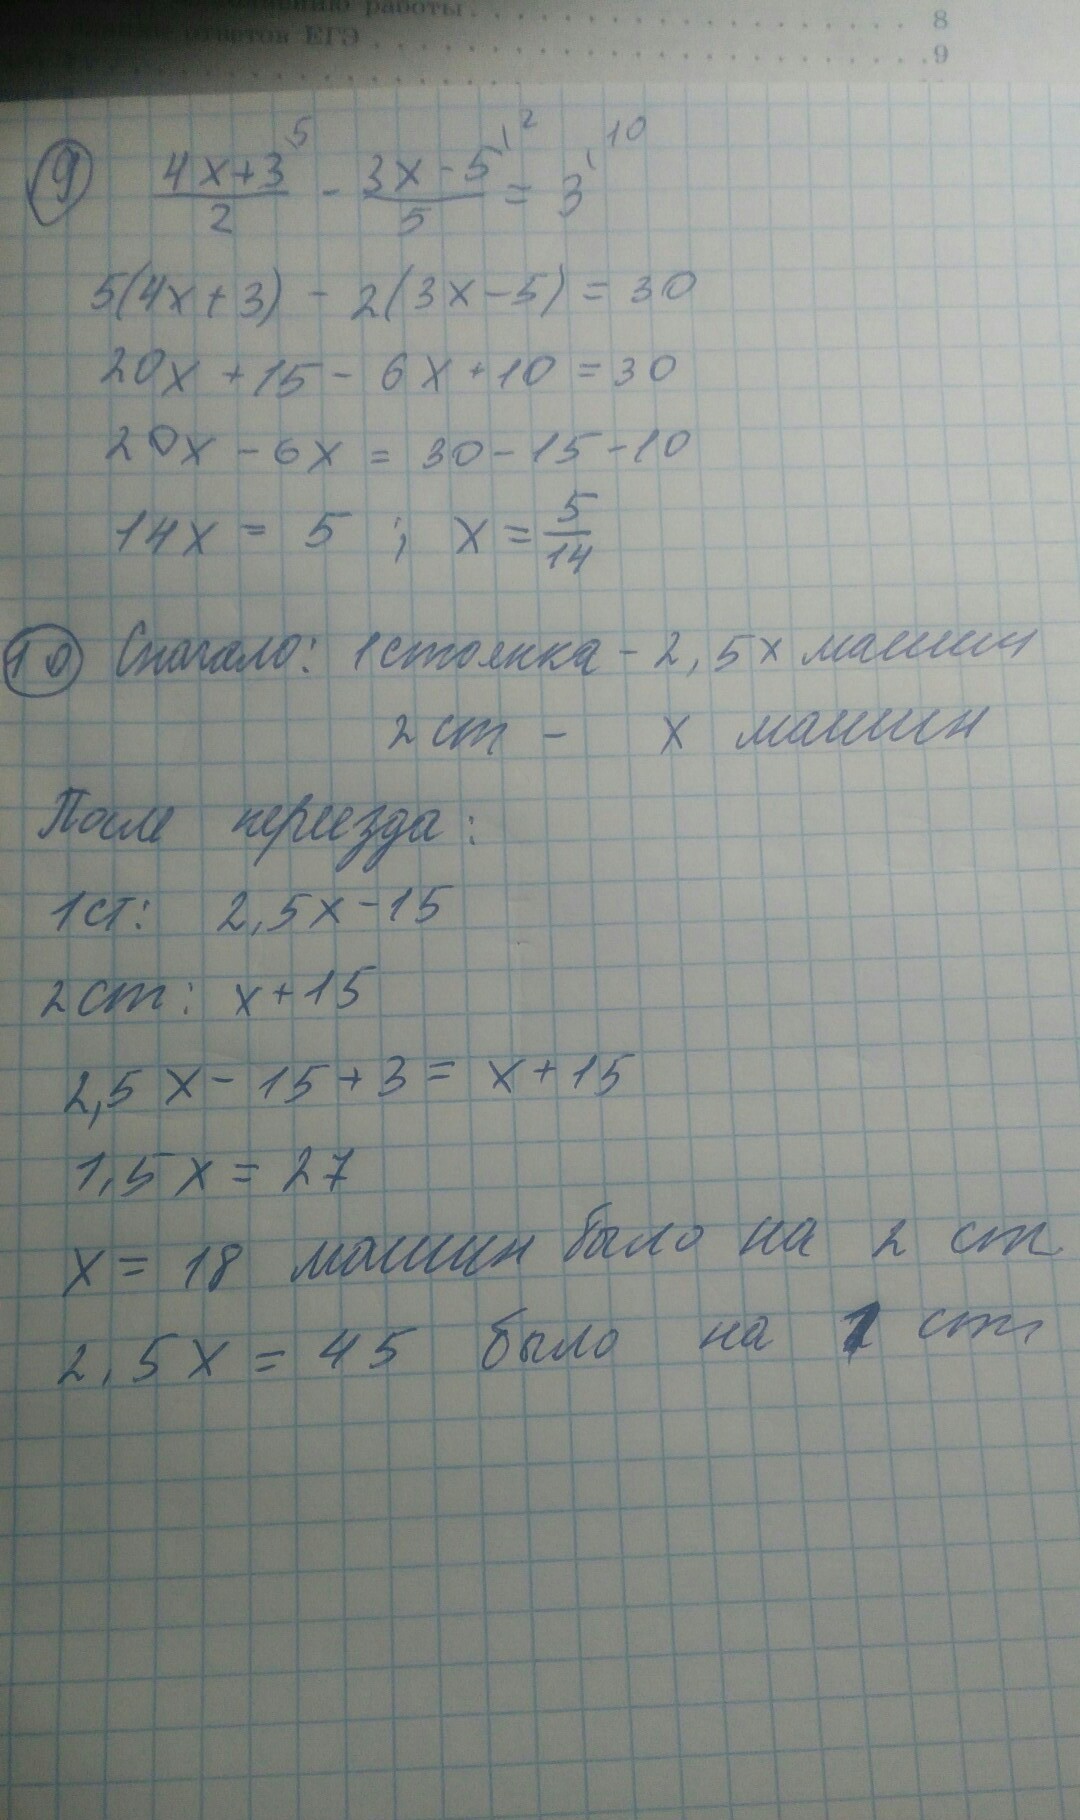 работы . . . . . . . . . . . . . . . . . 8
ответов ЕГЭ . . . . . . . . . . . . . . . . . 9
9 (4x+3)/2 ⁵ - (3x-5)/5 ² = 3 ¹⁰
5(4x+3) - 2(3x-5) = 30
20x + 15 - 6x + 10 = 30
20x - 6x = 30 - 15 - 10
14x = 5 ; x = 5/14
10 Сначало: 1 стоянка - 2,5x машин
2 ст - x машин
После переезда:
1 ст: 2,5x - 15
2 ст: x + 15
2,5x - 15 + 3 = x + 15
1,5x = 27
x = 18 машин было на 2 ст
2,5x = 45 было на 1 ст